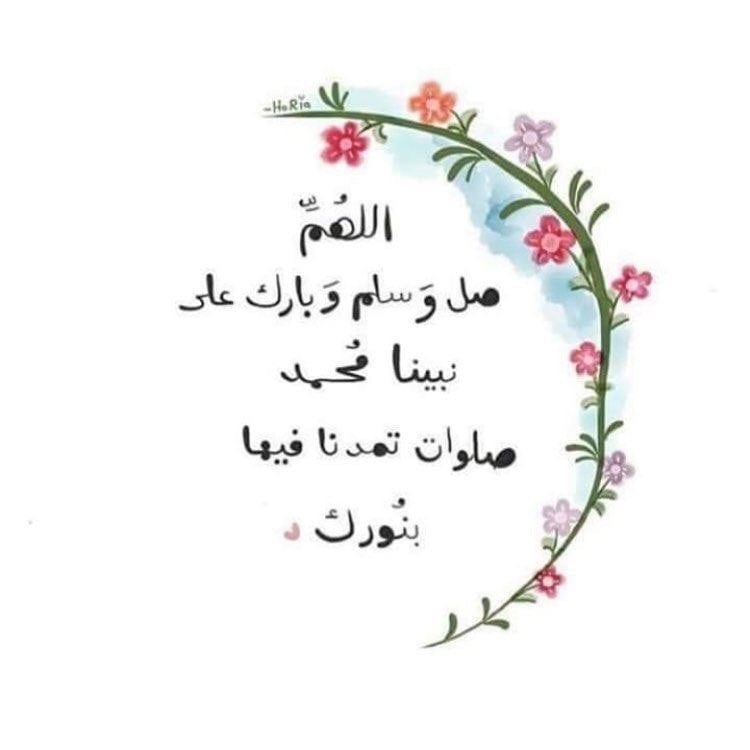 ~HoRia
اللهُمِّ
صل وَسلم وَبارك على
نبينا مُحمد
صلوات تمدنا فيها
بنُورك